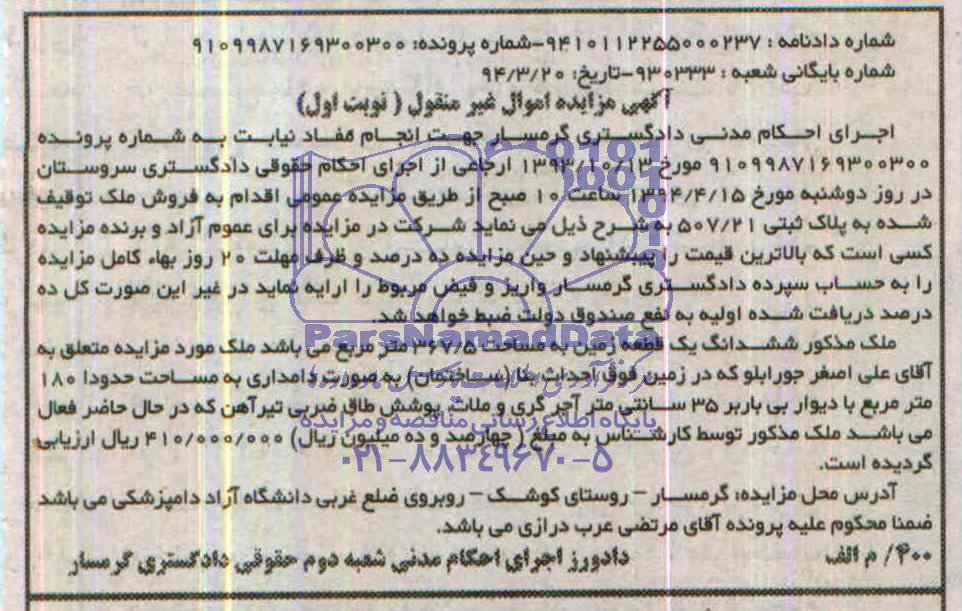 شماره دادنامه : ۹۴۱۰۱۱۲۲۵۵۰۰۰۲۳۷-شماره پرونده: ۹۱۰۹۹۸۷۱۶۹۳۰۰۳۰۰
شماره بایگانی شعبه : ۹۳۰۳۳۳-تاریخ: ۹۴/۳/۲۰
آگهی مزایده اموال غیر منقول ( نوبت اول)
اجرای احکام مدنی دادگستری گرمسار جهت انجام مفاد نیابت به شماره پرونده
۹۱۰۹۹۸۷۱۶۹۳۰۰۳۰۰ مورخ ۱۳۹۳/۱۰/۱۳ ارجاعی از اجرای احکام حقوقی دادگستری سروستان
در روز دوشنبه مورخ ۱۳۹۴/۴/۱۵ ساعت ۱۰ صبح از طریق مزایده عمومی اقدام به فروش ملک توقیف
شده به پلاک ثبتی ۵۰۷/۲۱ به شرح ذیل می نماید شرکت در مزایده برای عموم آزاد و برنده مزایده
کسی است که بالاترین قیمت را پیشنهاد و حین مزایده ده درصد و ظرف مهلت ۲۰ روز بهاء کامل مزایده
را به حساب سپرده دادگستری گرمسار واریز و فیض مربوط را ارایه نماید در غیر این صورت کل ده
درصد دریافت شده اولیه به نفع صندوق دولت ضبط خواهد شد.
ParsNamadData
ملک مذکور ششدانگ یک قطعه زمین به مساحت ۳۶۷/۵ متر مربع می باشد ملک مورد مزایده متعلق به
آقای علی اصغر جورابلو که در زمین فوق احداث بنا (ساختمان) به صورت دامداری به مساحت حدودا ۱۸۰
متر مربع با دیوار بی باربر ۳۵ سانتی متر آجر گری و ملات پوشش طاق ضربی تیرآهن که در حال حاضر فعال
پایگاه اطلاع رسانی مناقصه و مزایده
می باشد ملک مذکور توسط کارشناس به مبلغ ( چهارصد و ده میلیون ریال) ۴۱۰/۰۰۰/۰۰۰ ریال ارزیابی
گردیده است.
۰۲۱-۸۸۳۴۹۶۷۰-۵
آدرس محل مزایده: گرمسار – روستای کوشک – روبروی ضلع غربی دانشگاه آزاد دامپزشکی می باشد
ضمنا محکوم علیه پرونده آقای مرتضی عرب درازی می باشد.
۴۰۰/ م الف دادورز اجرای احکام مدنی شعبه دوم حقوقی دادگستری گرمسار